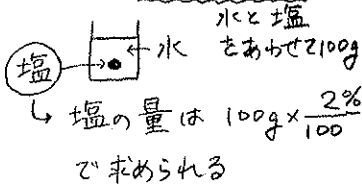 水と塩
をあわせて100g
水
塩
塩の量は 100g×2%/100
で求められる